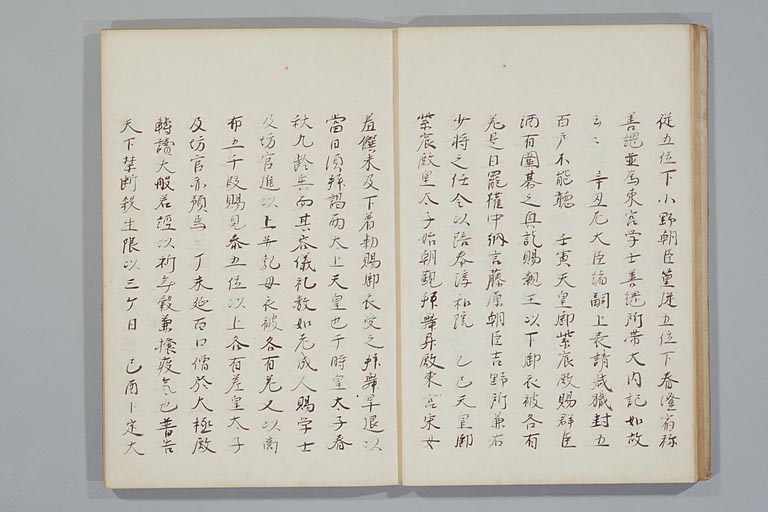 從五位下小野朝臣篁從五位下春澄宿祢
善繩並爲東宮学士善繩所帯大内記如故
云々 辛丑左大臣緒嗣上表請减職封五
百戸不能聽 壬寅天皇御紫宸殿賜群臣
酒有圍碁之興訖賜親王以下御衣被各有
差是日罷權中納言藤原朝臣吉野所兼右
少将之任令以陪奉淳和院 乙巳天皇御
紫宸殿皇太子始朝覲拝舞昇殿東宮采女
羞饌未及下着勅賜御衣受之拝舞早退以
當日須拝謁兩太上天皇也于時皇太子春
秋九齢矣而其容儀礼数如老成人賜学士
及坊官進以上并乳母衣被各有差又以商
布五千段賜見参五位以上各有差皇太子
及坊官亦預焉 丁未延百口僧於大極殿
轉讀大般若經以祈年穀兼攘疫氣也普告
天下禁断殺生限以三ケ日 己酉卜定大